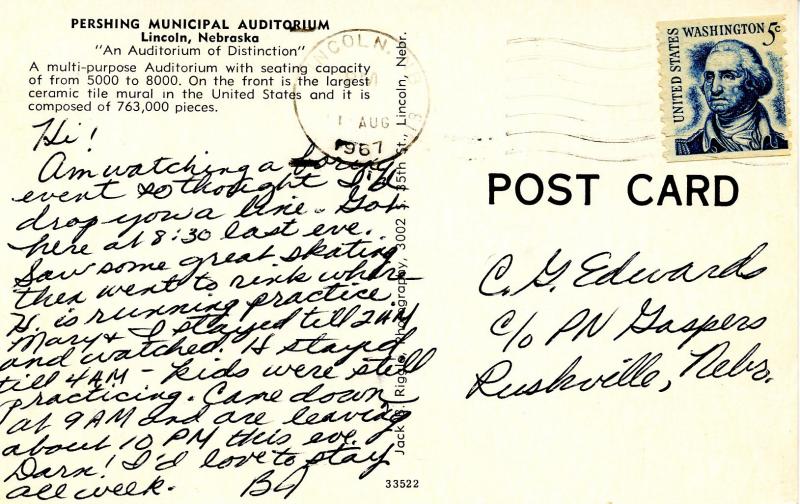 PERSHING MUNICIPAL AUDITORIUM
Lincoln, Nebraska
"An Auditorium of Distinction"
A multi-purpose Auditorium with seating capacity
of from 5000 to 8000. On the front is the largest
ceramic tile mural in the United States and it is
composed of 763,000 pieces.
Hi!
Am watching a boring
event so thought I'd
drop you a line. Got
here at 8:30 last eve.
Saw some great skating
then went to rink where
H. is running practice.
Mary & I stayed till 2 AM
and watched. H stayed
till 4 AM - kids were still
practicing. Came down
at 9 AM and are leaving
about 10 PM this eve.
Darn! I'd love to stay
all week.
33522
LINCOLN, NEB
AUG
1967
Jack B. Riggle, Photography, 3002 S. 35th St., Lincoln, Nebr.
UNITED STATES
WASHINGTON 5c
POST CARD
C. G. Edwards
c/o PN Gaspers
Rushville, Nebr.